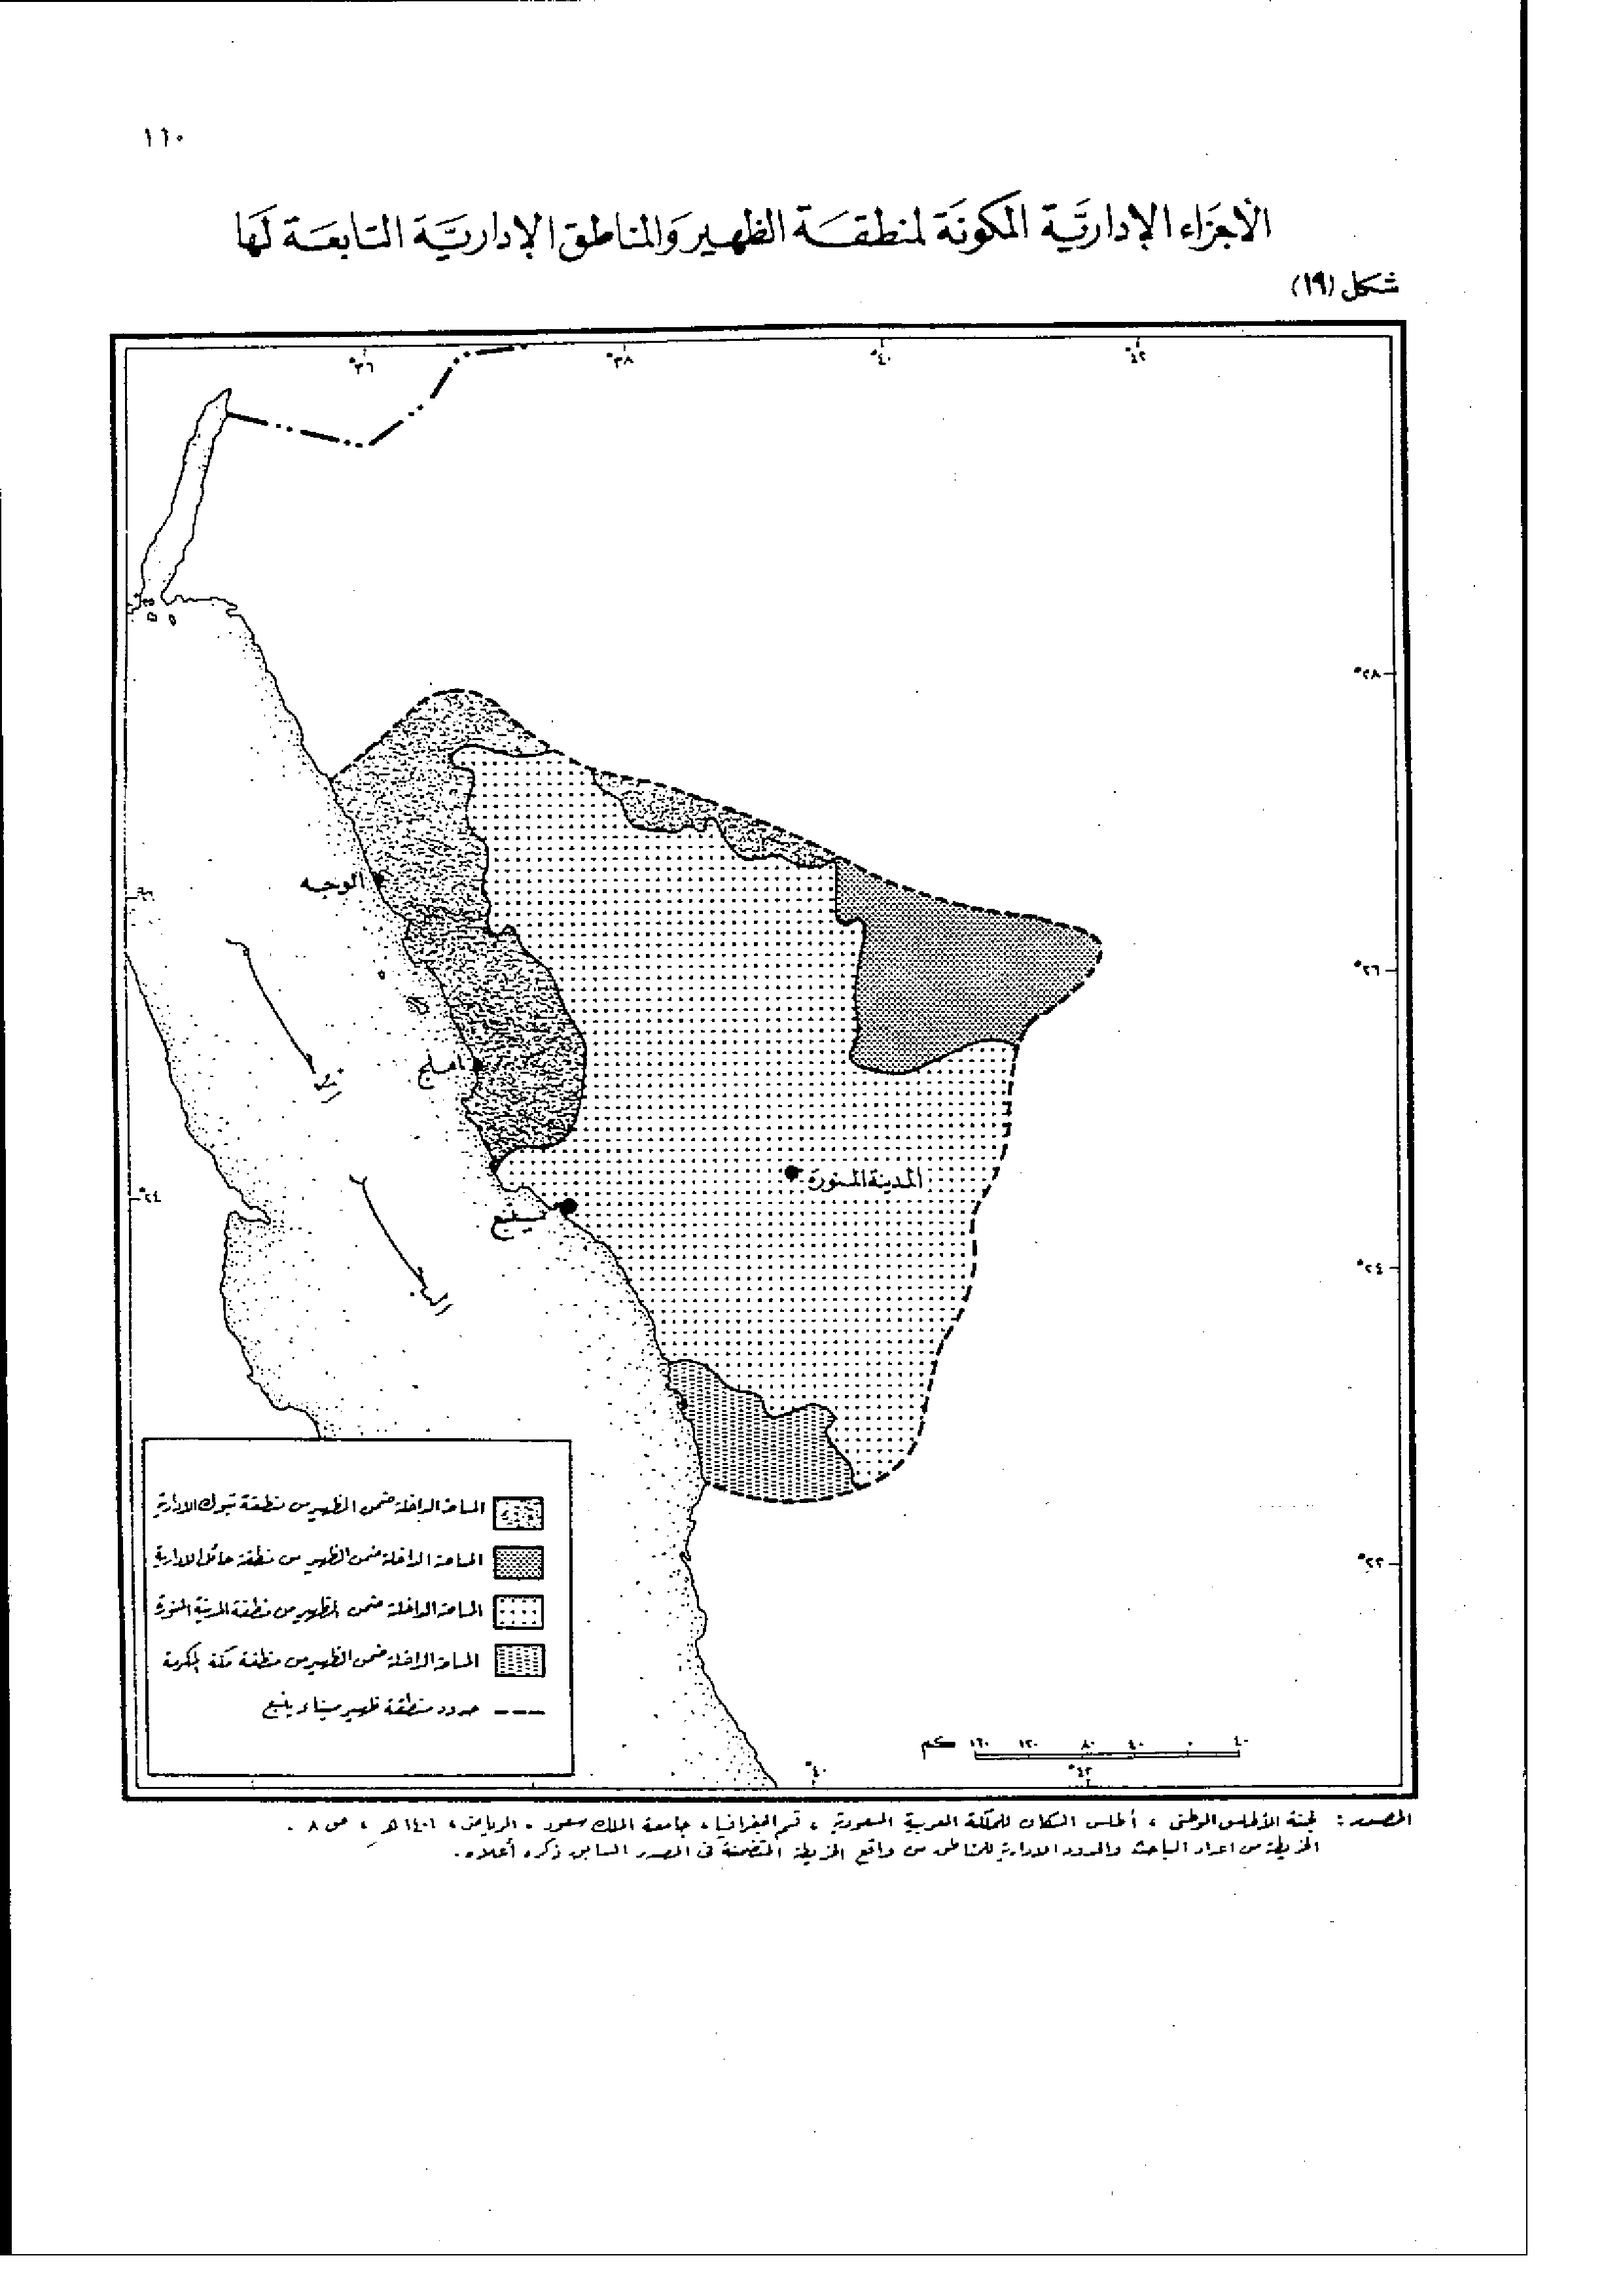 ١١٠
الأجزاء الإدارية المكونة لمنطقة الظهير والمناطق الإدارية التابعة لها
شكل (١٩)
°٣٦
°٣٨
°٤٠
°٤٢
°٢٨
الوجه
°٢٦
°٢٦
املج
المدينة المنورة
°٢٤
ينبع
°٢٤
المساحة الداخلة ضمن الظهير من منطقة تبوك الادارية
المساحة الداخلة ضمن الظهير من منطقة حائل الادارية
المساحة الداخلة ضمن الظهير من منطقة المدينة المنورة
°٢٢
المساحة الداخلة ضمن الظهير من منطقة مكة المكرمة
حدود منطقة ظهير ميناء ينبع
٤٠ ٠ ٤٠ ٨٠ ١٢٠ ١٦٠ كم
°٤٠
°٤٢
المصدر : لجنة الأطلس الوطني ، أطلس السكان للمملكة العربية السعودية ، قسم الجغرافيا ، جامعة الملك سعود ، الرياض ، ١٤٠١هـ ، ص ٨ .
الخريطة من اعداد الباحث والحدود الادارية للمناطق من واقع الخريطة المتضمنة في المصدر السابق ذكره أعلاه .